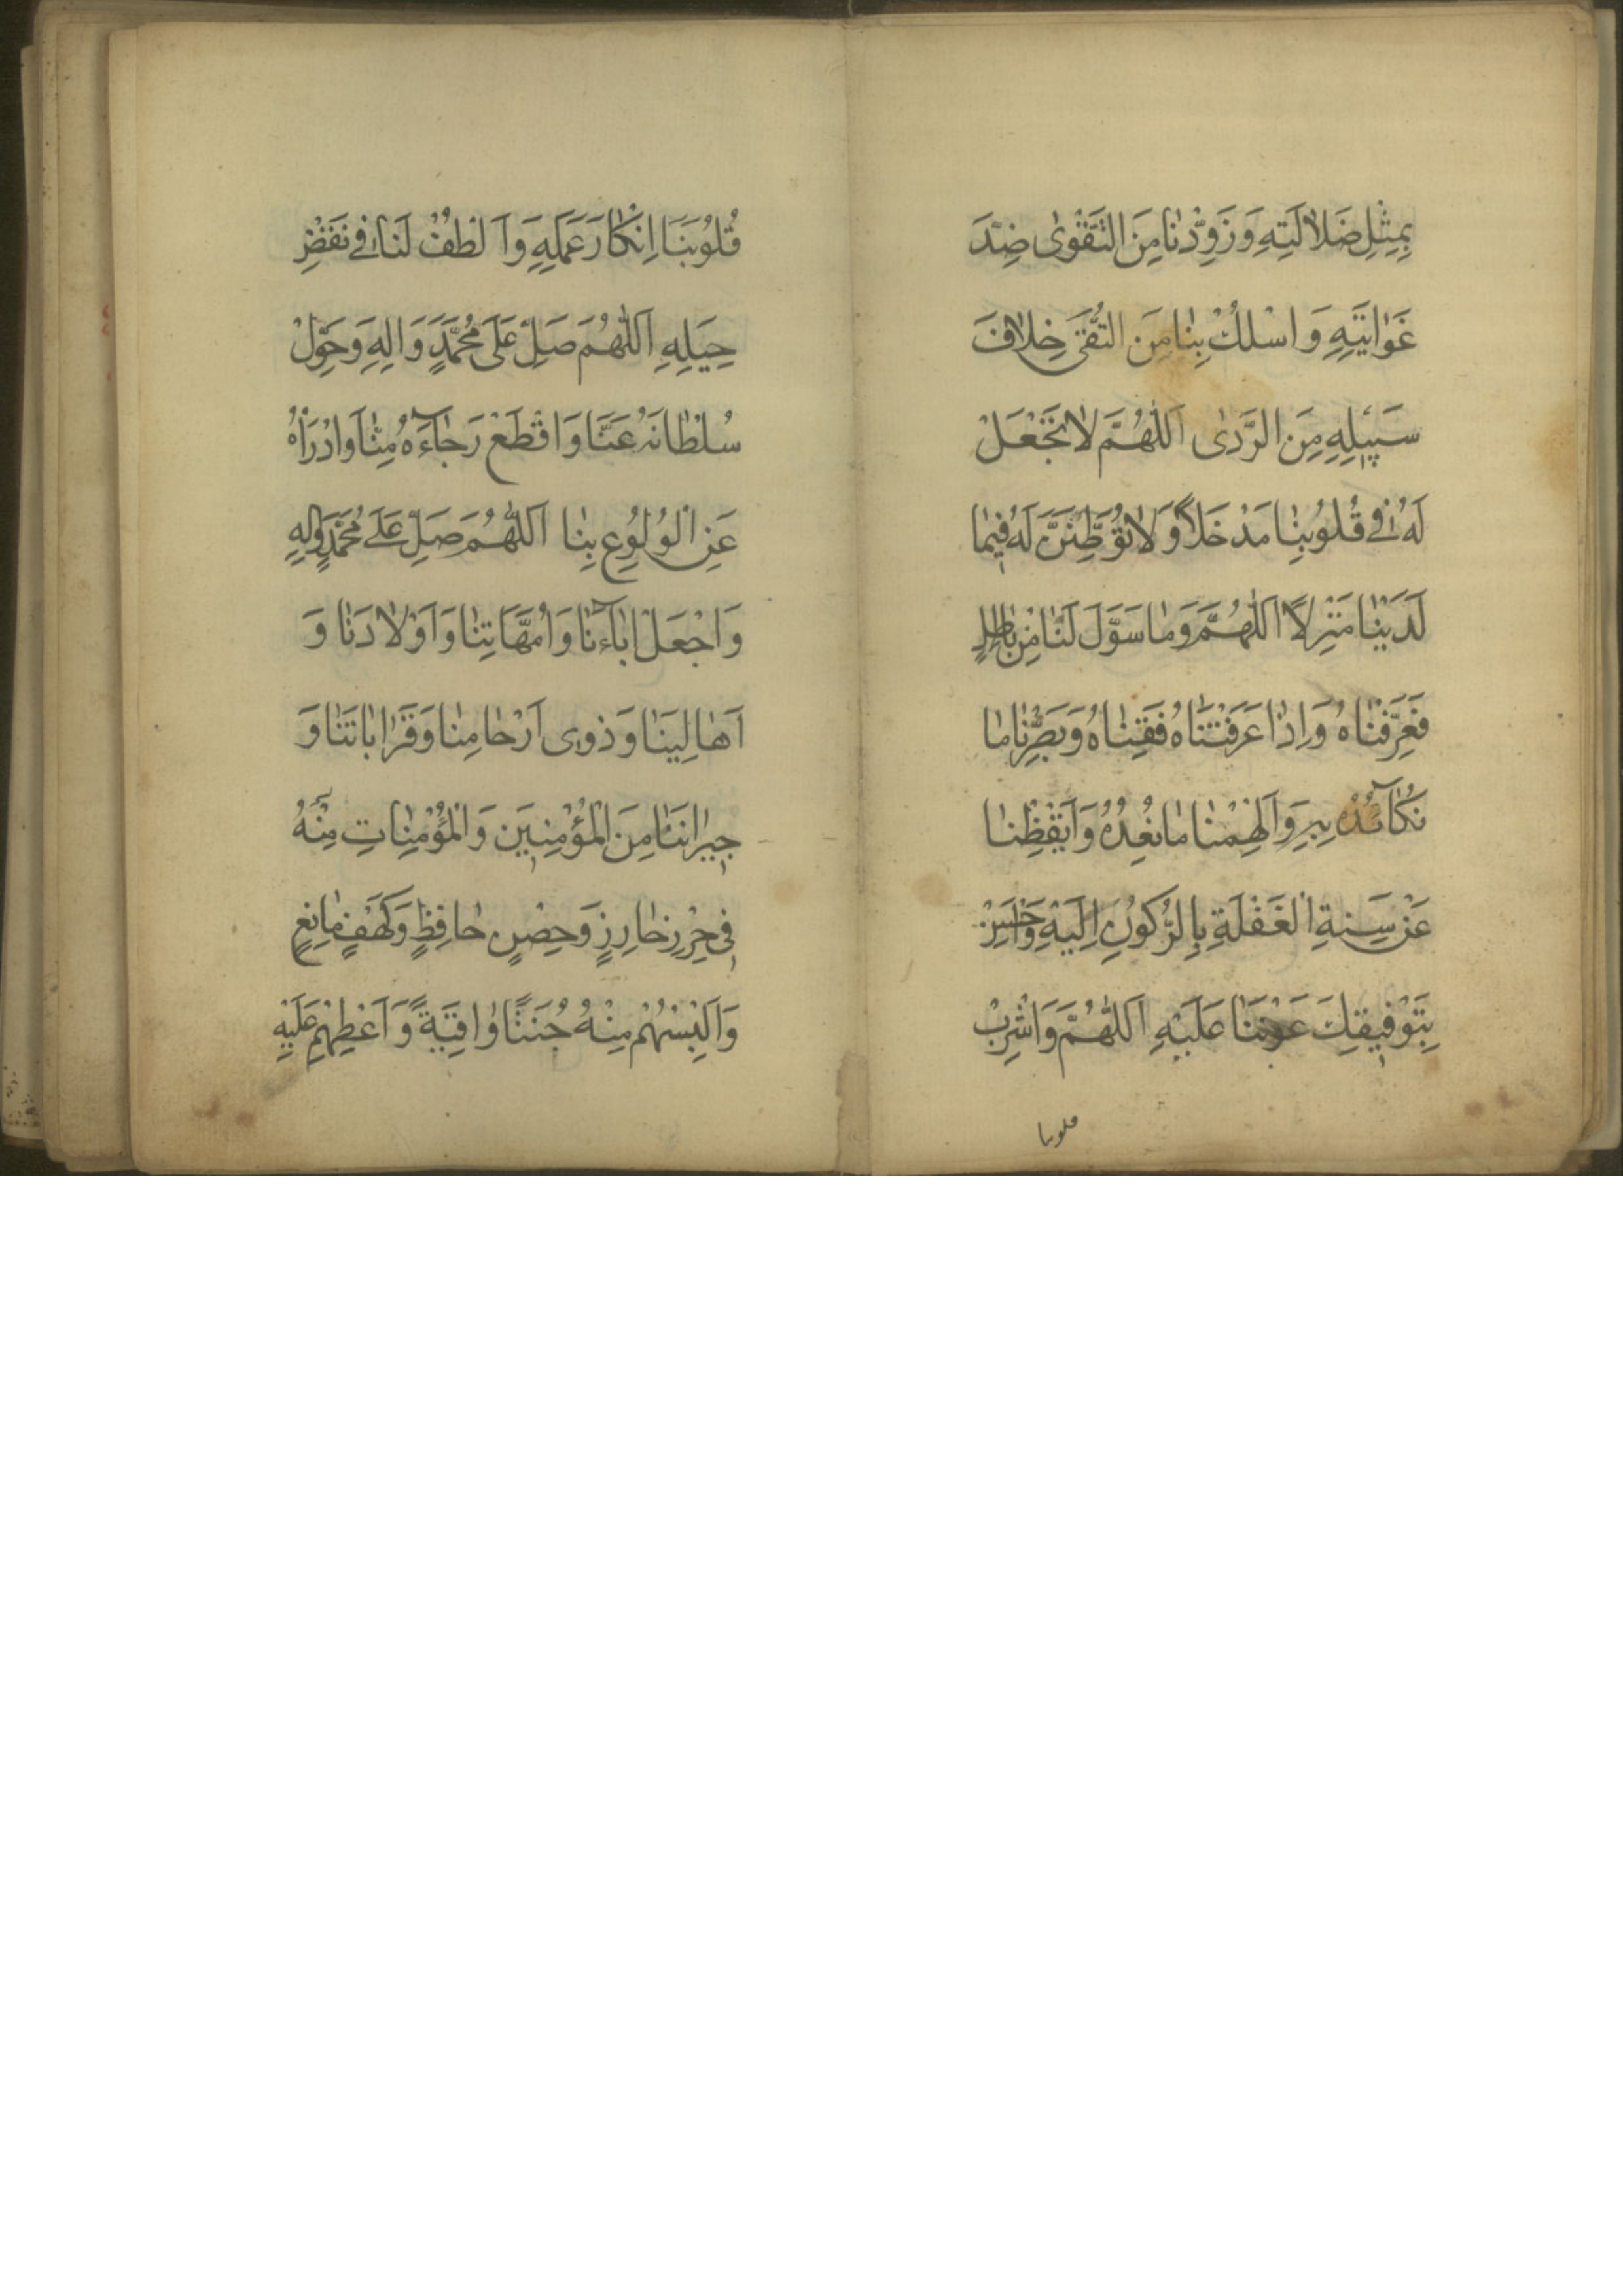 بِمِثْلِ ضَلَالَتِهِ وَ زَوِّدْنَا مِنَ التَّقْوٰى ضِدَّ
غَوَايَتِهِ وَ اسْلُكْ بِنَا مِنَ التُّقٰى خِلَافَ
سَبِيلِهِ مِنَ الرَّدٰى اَللّٰهُمَّ لَا تَجْعَلْ
لَهُ فِي قُلُوبِنَا مَدْخَلًا وَ لَا تُوَطِّنَنَّ لَهُ فِيمَا
لَدَيْنَا مَنْزِلًا اَللّٰهُمَّ وَمَا سَوَّلَ لَنَا مِنْ بَاطِلٍ
فَعَرِّفْنَاهُ وَ اِذَا عَرَّفْتَنَاهُ فَقِنَاهُ وَ بَصِّرْنَا مَا
نُكَآئِدُهُ بِهِ وَ اَلْهِمْنَا مَا نُعِدُّهُ وَ اَيْقِظْنَا
عَنْ سِنَةِ الْغَفْلَةِ بِالرُّكُونِ اِلَيْهِ وَ اَحْسِنْ
بِتَوْفِيقِكَ عَوْنَنَا عَلَيْهِ اَللّٰهُمَّ وَ اَشْرِبْ
قلوبنا
قُلُوبَنَا اِنْكَارَ عَمَلِهِ وَ الْطُفْ لَنَا فِي نَقْضِ
حِيَلِهِ اَللّٰهُمَّ صَلِّ عَلٰى مُحَمَّدٍ وَ اٰلِهِ وَ حَوِّلْ
سُلْطَانَهُ عَنَّا وَ اقْطَعْ رَجَآءَهُ مِنَّا وَ ادْرَأْهُ
عَنِ الْوُلُوعِ بِنَا اَللّٰهُمَّ صَلِّ عَلٰى مُحَمَّدٍ وَ اٰلِهِ
وَ اجْعَلْ اٰبَآءَنَا وَ اُمَّهَاتِنَا وَ اَوْلَادَنَا وَ
اَهَالِيَنَا وَ ذَوِى اَرْحَامِنَا وَ قَرَابَاتِنَا وَ
جِيرَانَنَا مِنَ الْمُؤْمِنِينَ وَ الْمُؤْمِنَاتِ مِنْهُ
فِي حِرْزٍ حَارِزٍ وَ حِصْنٍ حَافِظٍ وَ كَهْفٍ مَانِعٍ
وَ اَلْبِسْهُمْ مِنْهُ جُنَنًا وَاقِيَةً وَ اَعْطِهِمْ عَلَيْهِ